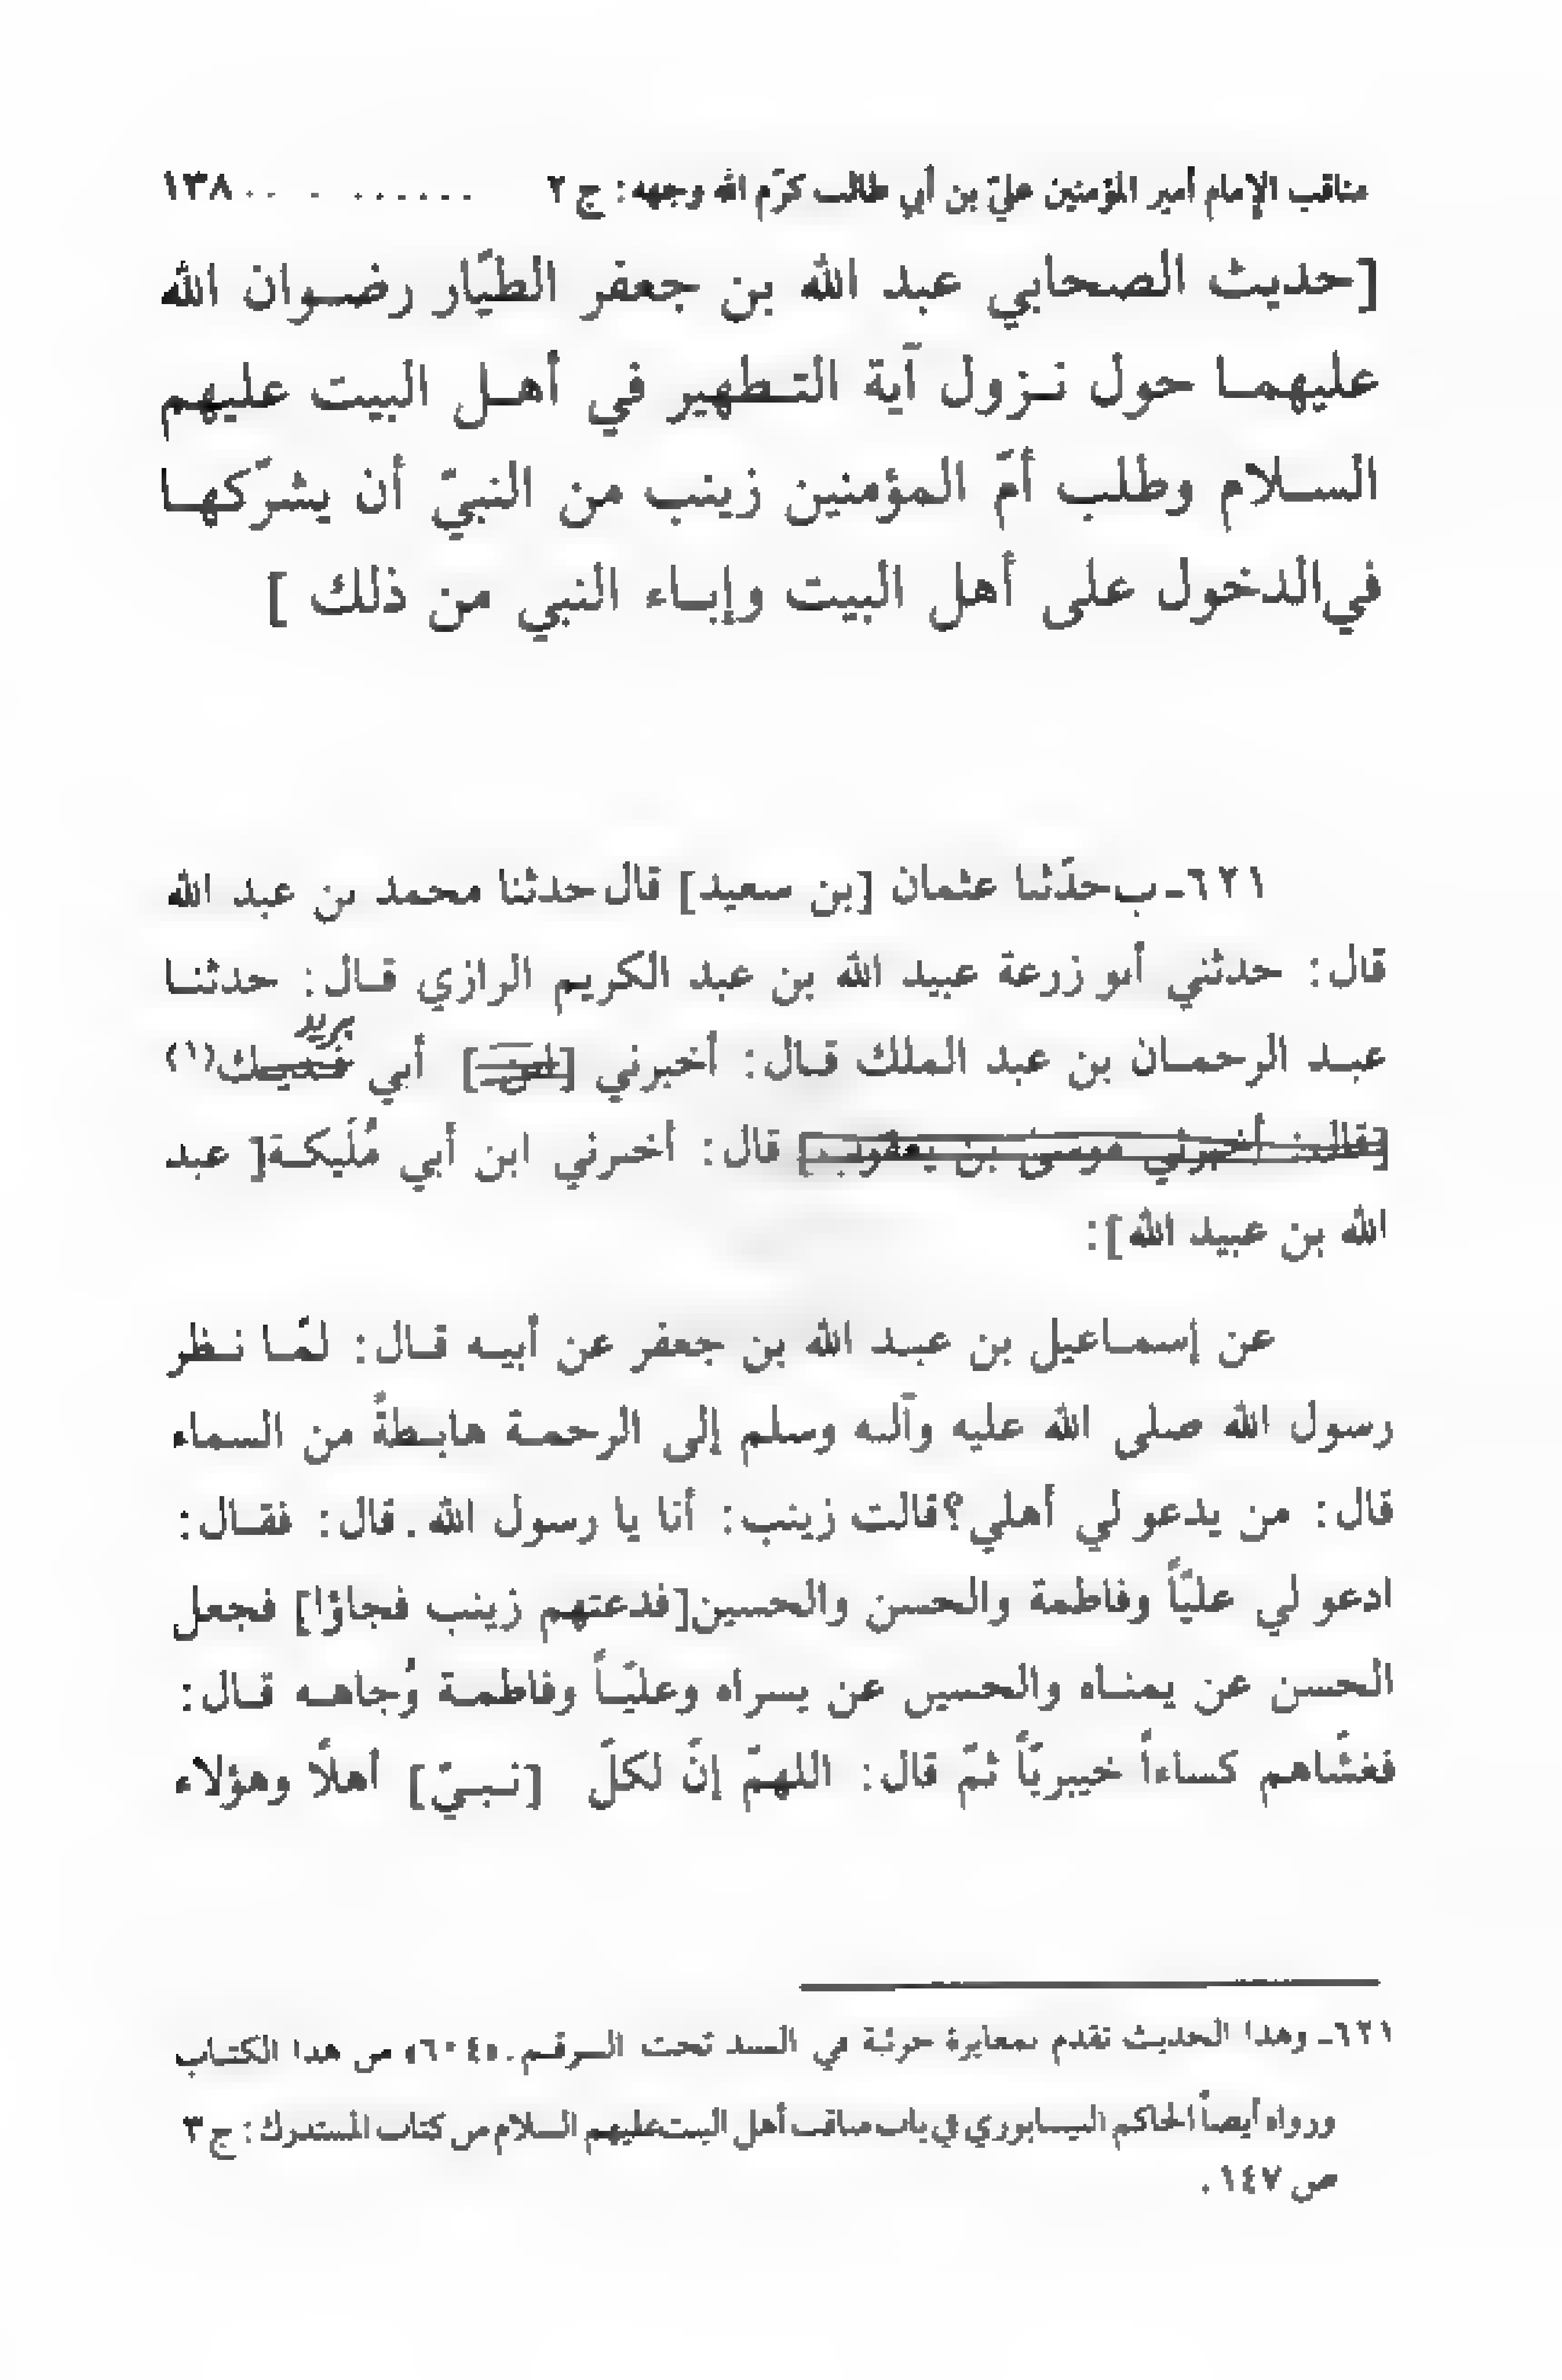 مناقب الإمام أمير المؤمنين عليّ بن أبي طالب كرّم الله وجهه: ج ٢ ...... . .. ١٣٨
[حديث الصحابي عبد الله بن جعفر الطيّار رضوان الله
عليهما حول نزول آية التطهير في أهل البيت عليهم
السلام وطلب أمّ المؤمنين زينب من النبيّ أن يشرّكها
في الدخول على أهل البيت وإباء النبي من ذلك ]
٦٢١ـ ب حدّثنا عثمان [بن سعيد] قال حدثنا محمد بن عبد الله
قال: حدثني أبو زرعة عبيد الله بن عبد الكريم الرازي قال: حدثنا
يريد
عبد الرحمان بن عبد الملك قال: أخبرني [ابن] أبي فديك(١)
[قال: أخبرني موسى بن يعقوب] قال: أخبرني ابن أبي مُلَيكة[ عبد
الله بن عبيد الله]:
عن إسماعيل بن عبد الله بن جعفر عن أبيه قال: لمّا نظر
رسول الله صلى الله عليه وآله وسلم إلى الرحمة هابطةً من السماء
قال: من يدعو لي أهلي؟ قالت زينب: أنا يا رسول الله. قال: فقال:
ادعو لي عليّاً وفاطمة والحسن والحسين[فدعتهم زينب فجاؤا] فجعل
الحسن عن يمناه والحسين عن يسراه وعليّاً وفاطمة وُجاهه قال:
فغشّاهم كساءاً خيبريّاً ثمّ قال: اللهمّ إنّ لكلّ [نبيّ] أهلًا وهؤلاء
٦٢١ـ وهذا الحديث تقدم بمغايرة جزئية في السند تحت الرقم. «٦٠٤» من هذا الكتاب
ورواه أيضاً الحاكم النيسابوري في باب مناقب أهل البيت عليهم السلام من كتاب المستدرك: ج ٣
ص ١٤٧.